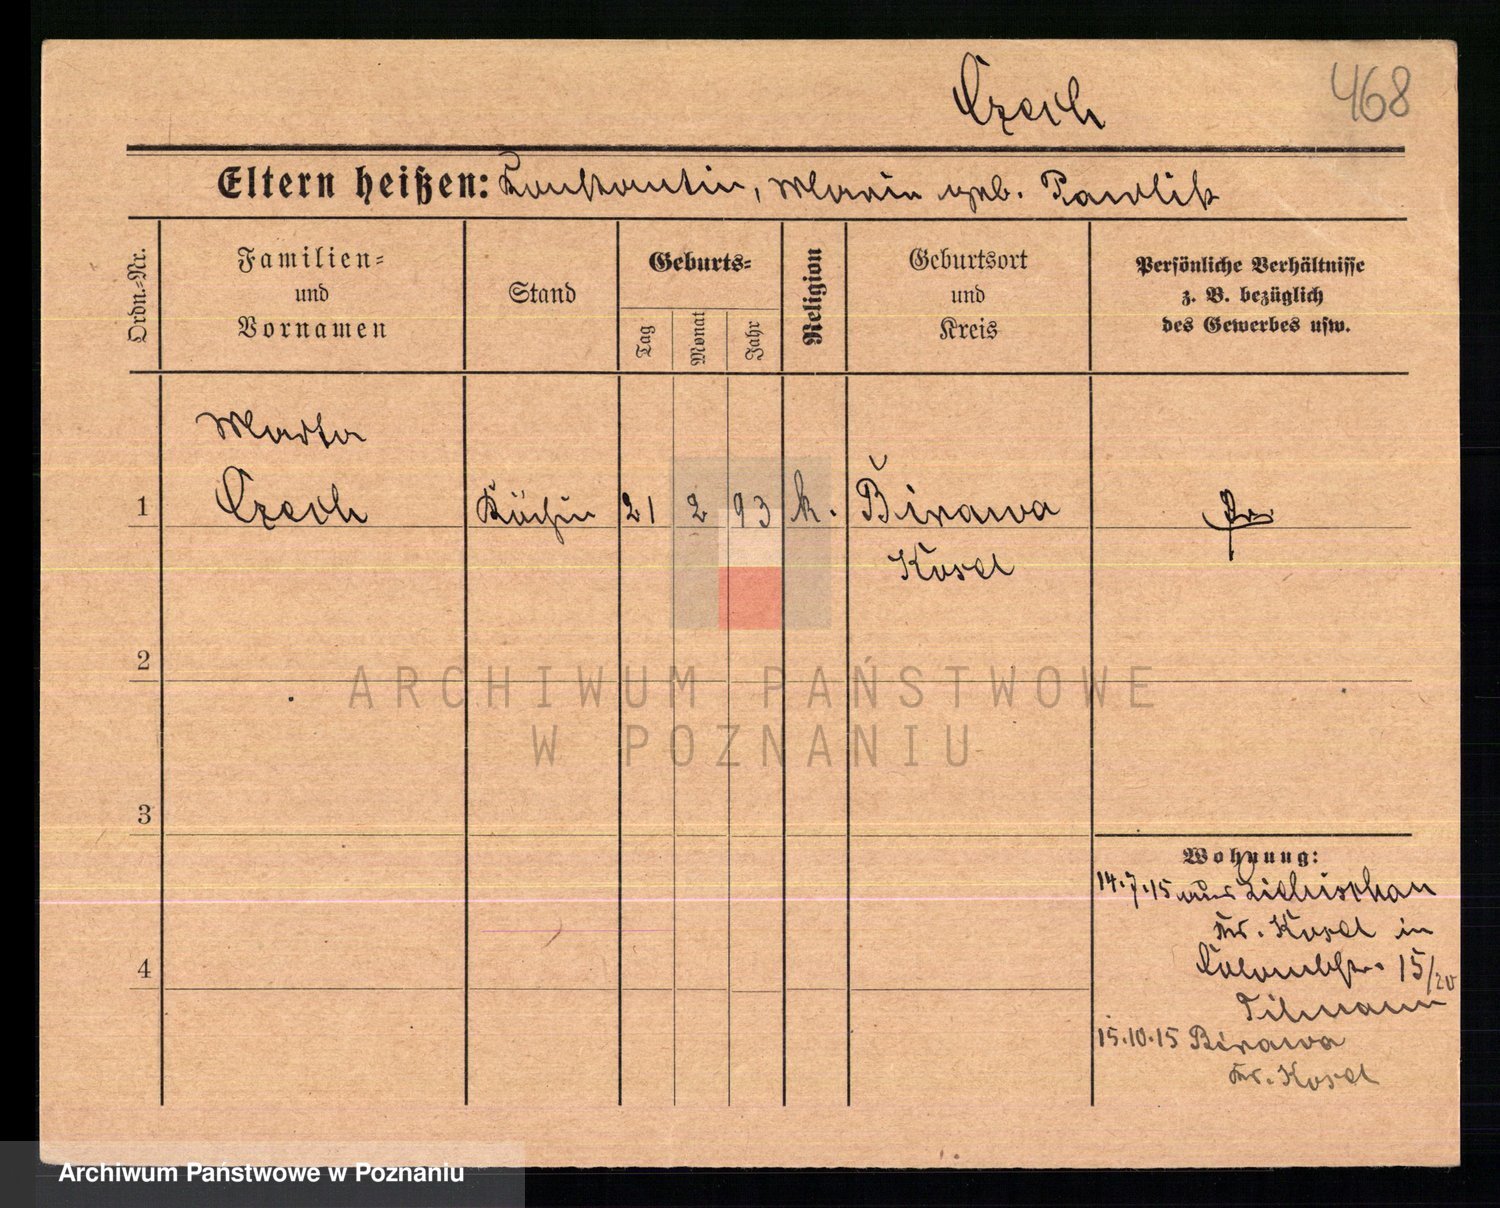 Czech
468
Eltern heißen: Konstantin, Maria geb. Pawlik
Ordn.-Nr.
Familien-
und
Vornamen
Stand
Geburts-
Tag
Monat
Jahr
Religion
Geburtsort
und
Kreis
Persönliche Verhältnisse
z. B. bezüglich
des Gewerbes usw.
Marta
1 Czech Köchin 21 2 93 k. Birawa Pr
Kosel
2
ARCHIWUM PAŃSTWOWE
W POZNANIU
3
Wohnung:
14.7.15 aus
Kr. Kosel in
4 15/20
Tilmann
15.10.15 Birawa
Kr. Kosel
Archiwum Państwowe w Poznaniu